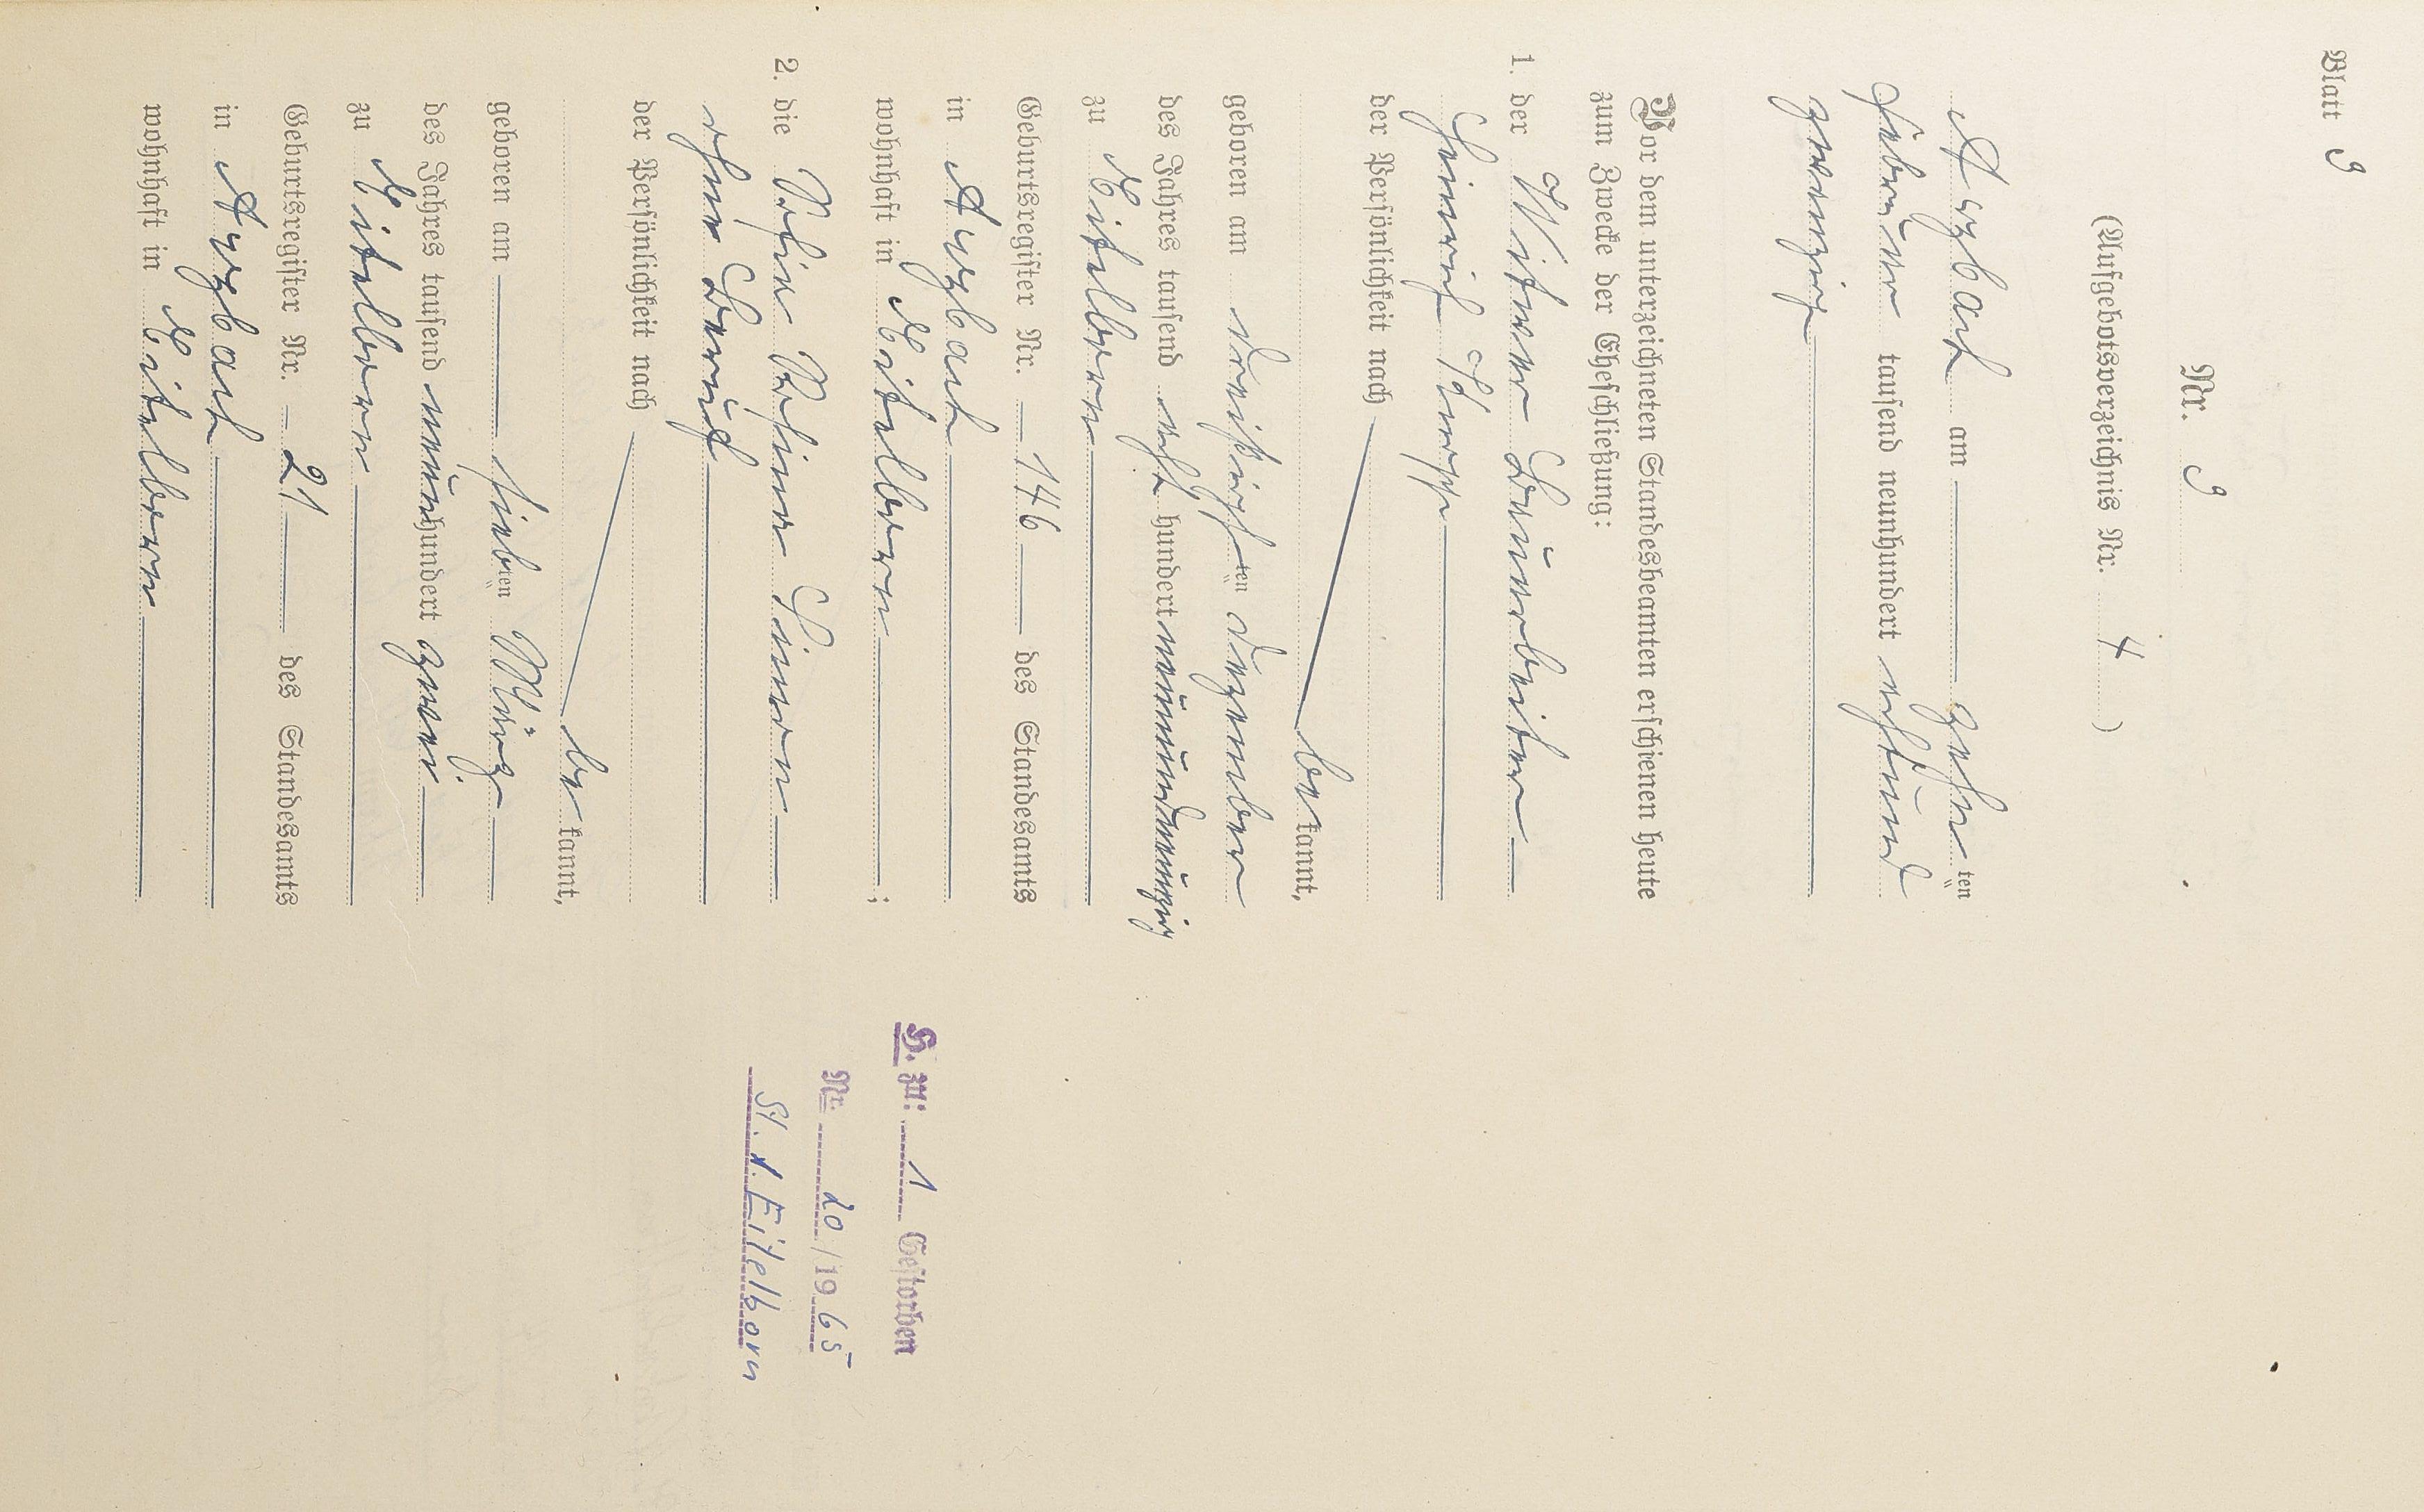 Blatt 9
Nr. 9
(Aufgebotsverzeichnis Nr. 4)
Arzbach am zehnten
Februar tausend neunhundert achtund
zwanzig
Vor dem unterzeichneten Standesbeamten erschienen heute
zum Zwecke der Eheschließung:
1. der Witwer Bauarbeiter
Heinrich
der Persönlichkeit nach
bekannt,
geboren am dreißigsten Dezember
des Jahres tausend achthundert neunundneunzig
zu Eitelborn
Geburtsregister Nr. 146 des Standesamts
in Arzbach
wohnhaft in Eitelborn;
2. die Rosina Simon
ohne Beruf
der Persönlichkeit nach
bekannt,
geboren am siebten März
des Jahres tausend neunhundert zwei
zu Eitelborn
Geburtsregister Nr. 21 des Standesamts
in Arzbach
wohnhaft in Eitelborn
H. zu: 1 Gestorben
Nr. 20/1965
St. A. Eitelborn